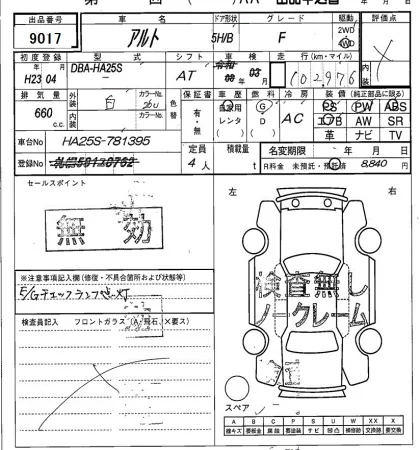 出品番号 車名 ドア形状 グレード 駆動 評価点
9017 アルト 5H/B F 2WD 4WD
初度登録 型式 シフト 車検 走行(km・マイル)
H23年04月 DBA-HA25S AT 03月 102976 内装
排気量 外装 カラーNo. 色替 保証書 車歴 燃料 冷房 装備(純正部品に限る)
660 c.c. 白 26U 有・無 自家用 レンタ G D AC PS PW ABS
内装 カラーNo. エアB AW SR
革 ナビ TV
車台No HA25S-781395 定員 積載量 名変期限 月 日
登録No 4人 t R料金 未預託・預託済 8,840
セールスポイント 左 右
無効
※注意事項記入欄(修復・不具合箇所および状態等)
E/Gチェックランプ点灯
検査無し
ノークレーム
検査員記入 フロントガラス(A、飛石、×要ス)
スペア
A B C P S U W X XX X
線キズ 要鈑金 腐蝕 要塗装 サビ 凹凸 補修跡 交換跡 要交換